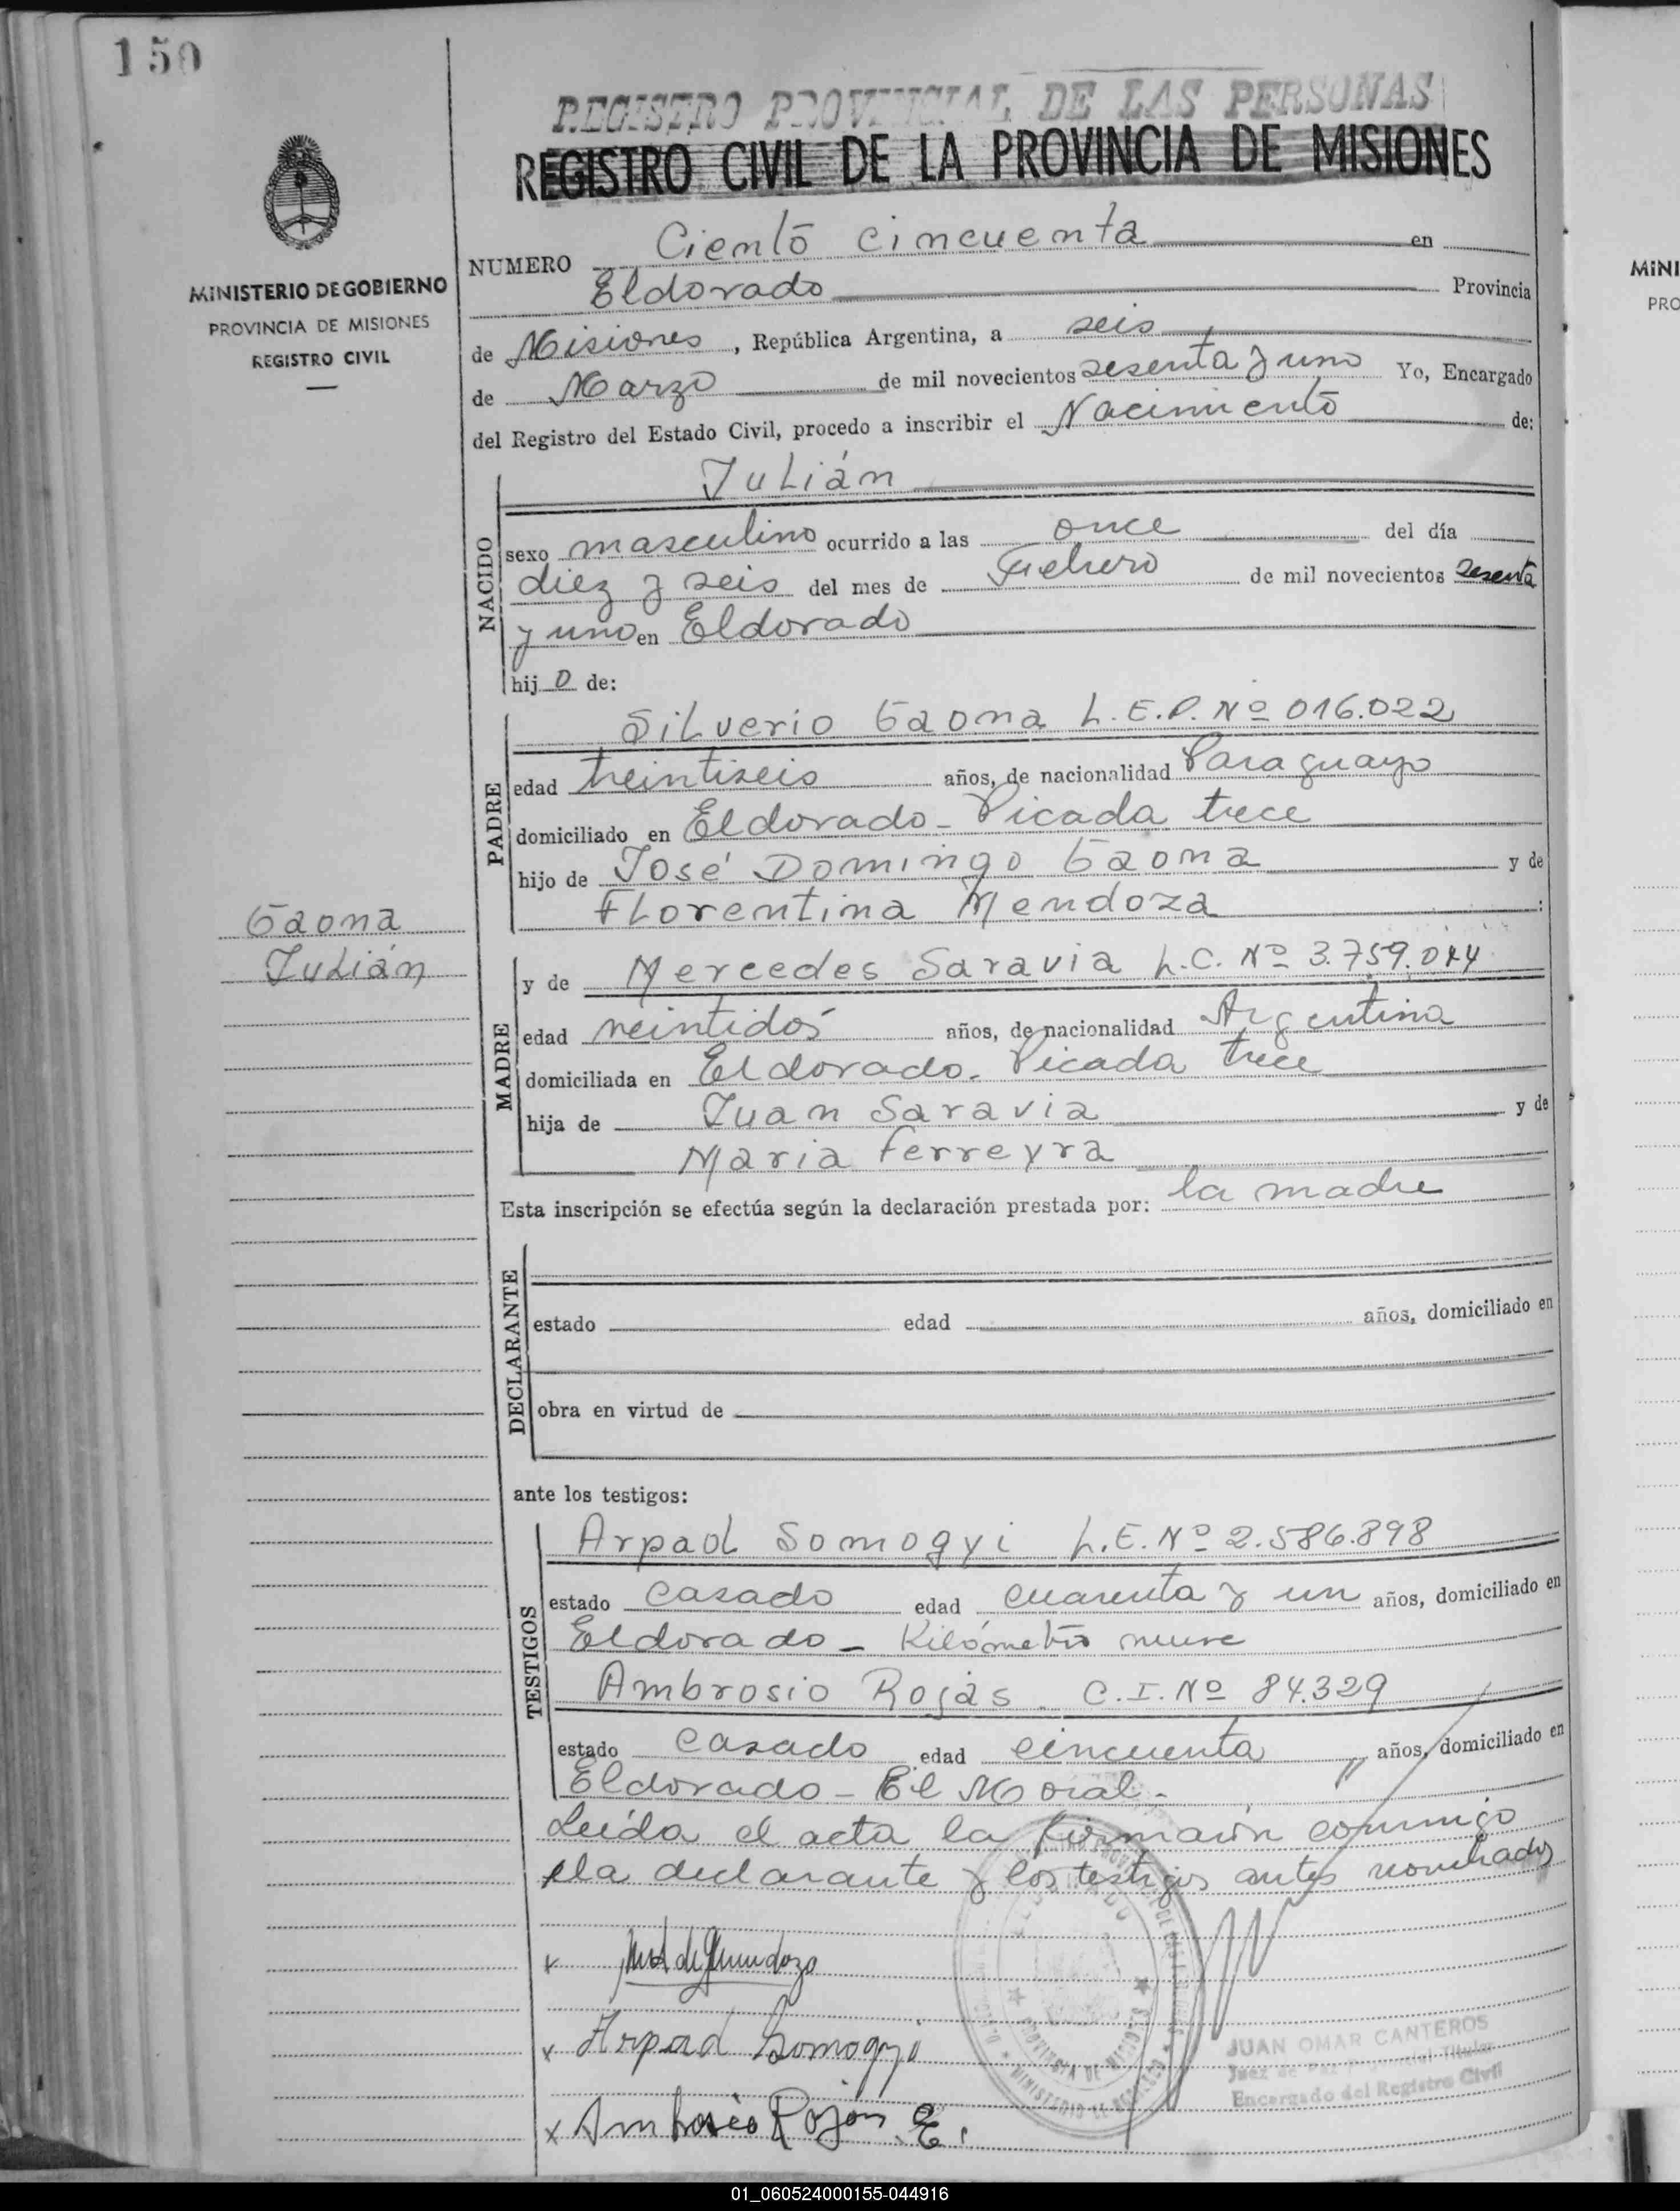 150
REGISTRO PROVINCIAL DE LAS PERSONAS
REGISTRO CIVIL DE LA PROVINCIA DE MISIONES
MINISTERIO DE GOBIERNO
PROVINCIA DE MISIONES
REGISTRO CIVIL
NUMERO Ciento cincuenta en
Eldorado Provincia
de Misiones, República Argentina, a seis
de Marzo de mil novecientos sesenta y uno Yo, Encargado
del Registro del Estado Civil, procedo a inscribir el Nacimiento de:
NACIDO
Julián
sexo masculino ocurrido a las once del día
diez y seis del mes de Febrero de mil novecientos sesenta
y uno en Eldorado
hijo de:
PADRE
Silverio Gaona L.E.P. Nº 016.022
edad treintiseis años, de nacionalidad Paraguayo
domiciliado en Eldorado - Picada trece
hijo de José Domingo Gaona y de
Florentina Mendoza :
Gaona
Julián
MADRE
y de Mercedes Saravia L.C. Nº 3.759.044
edad veintidos años, de nacionalidad Argentina
domiciliada en Eldorado. Picada trece
hija de Juan Saravia y de
Maria Ferreyra
Esta inscripción se efectúa según la declaración prestada por: la madre
DECLARANTE
estado edad años, domiciliado en
obra en virtud de
ante los testigos:
TESTIGOS
Arpad Somogyi L.E. Nº 2.586.898
estado casado edad cuarenta y un años, domiciliado en
Eldorado - Kilómetro nueve
Ambrosio Rojas C.I. Nº 84.329
estado casado edad cincuenta años, domiciliado en
Eldorado - El Moral.
Leída el acta la firmaron conmigo
la declarante y los testigos antes nombrados
x
x Arpad Somogyi
x Ambrosio Rojas E.
PROVINCIA DE MISIONES
MINISTERIO DE GOBIERNO
JUAN OMAR CANTEROS
Juez de Paz Titular
Encargado del Registro Civil
MINI
PRO
01_060524000155-044916